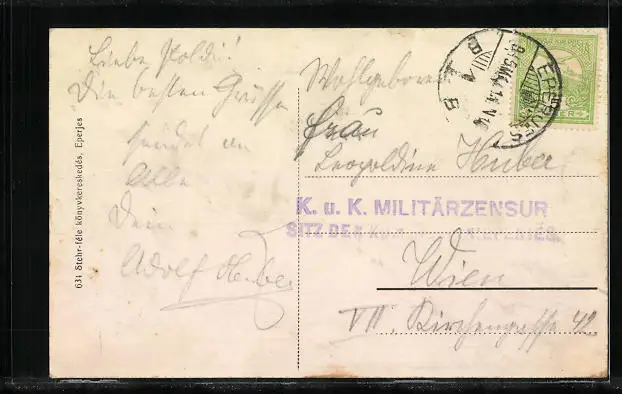 Liebe Poldi!
Die besten Grüsse
sendet an
Alle
Dein
Adolf Huber
634 Stehr-féle könyvkereskedés, Eperjes
EPERJES
Wohlgeboren
Frau
Leopoldine Huber
K. u. K. MILITÄRZENSUR
SITZ DES
Wien
VII. Kirchengasse 42